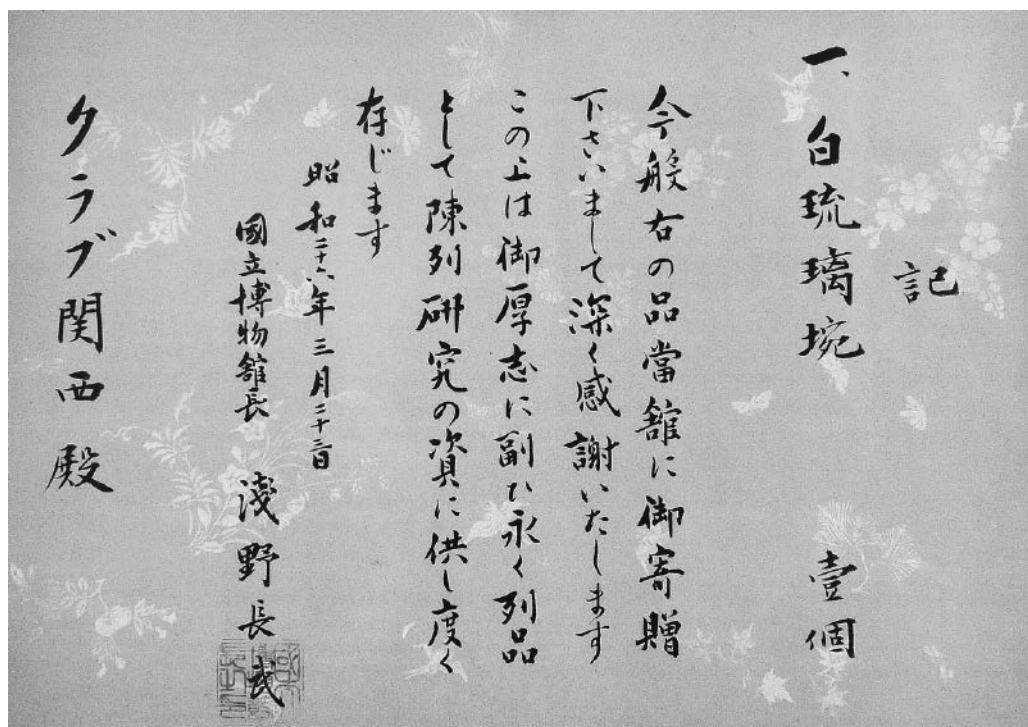 記
一、白琉璃埦 壹個
今般右の品當館に御寄贈
下さいまして深く感謝いたします
この上は御厚志に副ひ永く列品
として陳列研究の資に供し度く
存じます
昭和二十六年三月二十三日
國立博物館長 淺野長武
クラブ関西殿